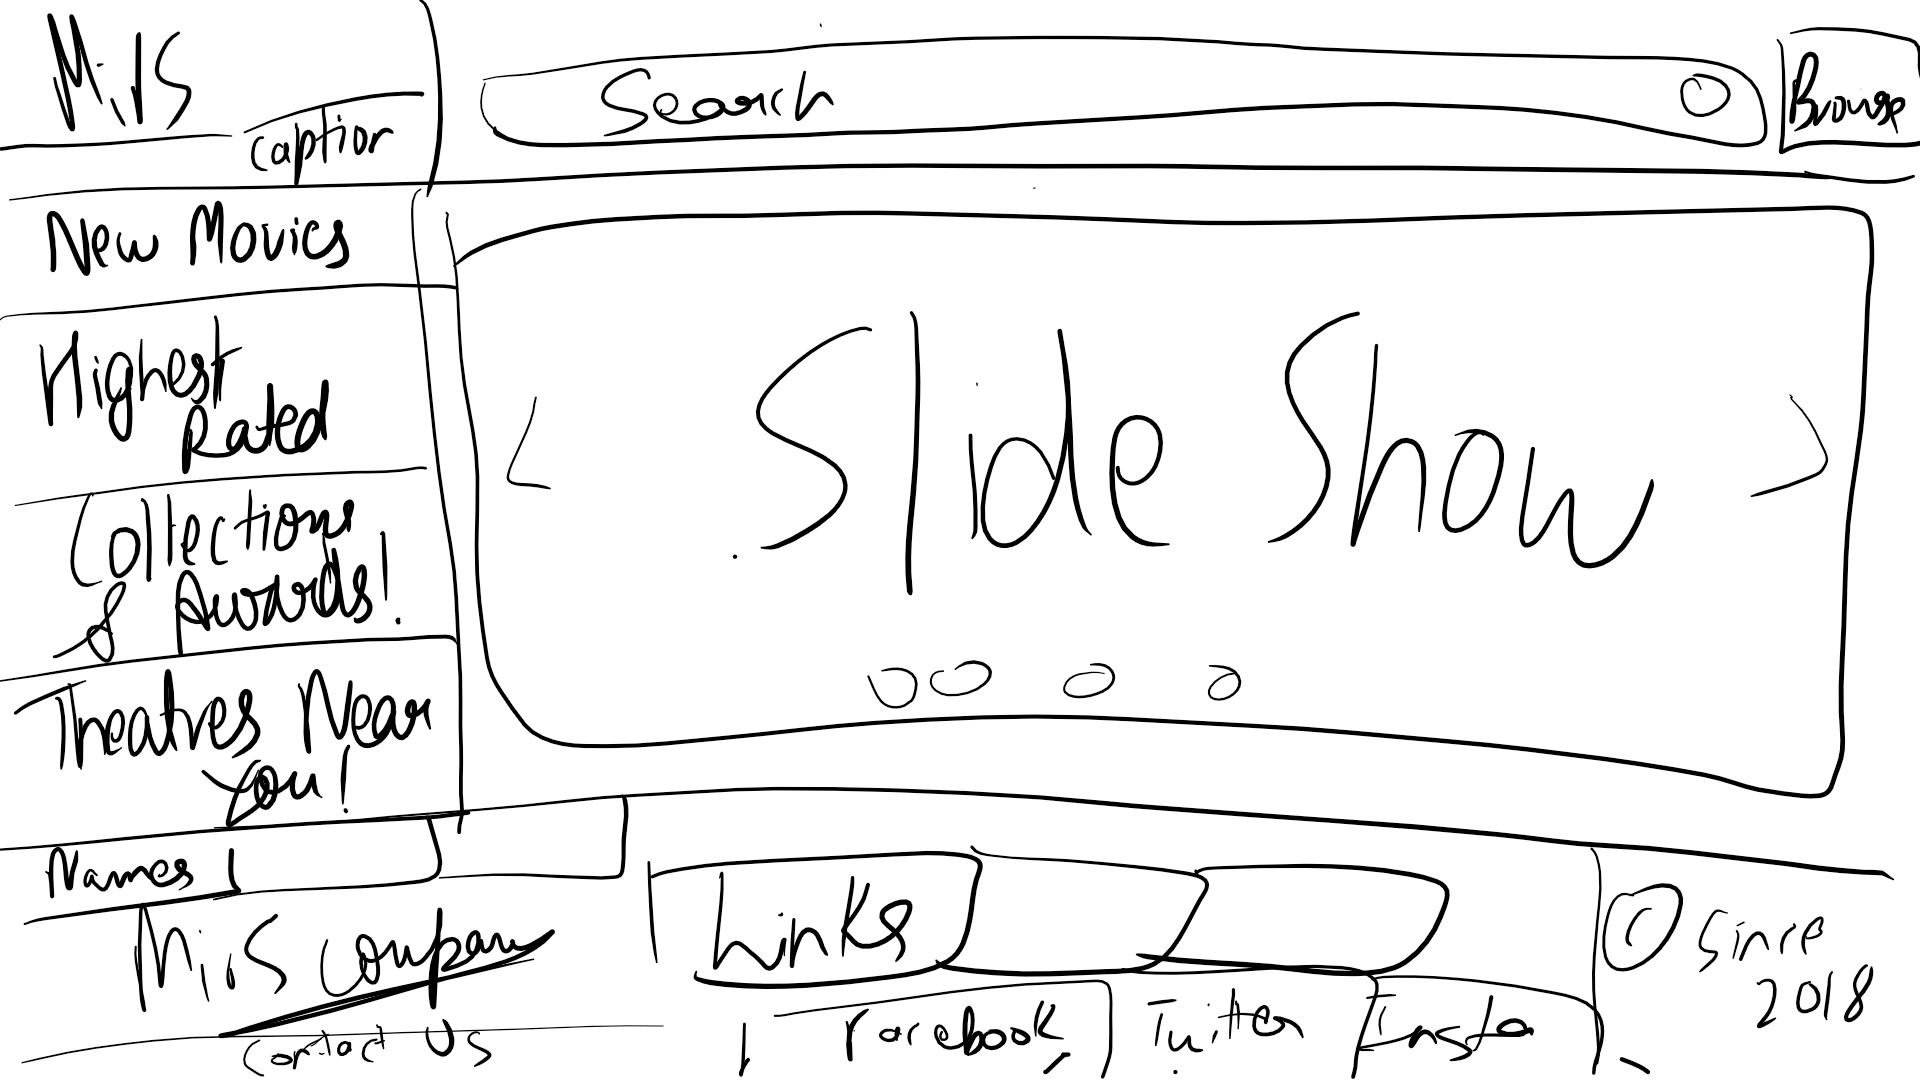 M.I.S
caption
Search
Browse
New Movies
Highest
Rated
Collections
& Awards!
Theatres Near
You!
Slide Show
Names
M.i.S Company
Contact Us
Links
Facebook
Twitter
Insta
© Since
2018